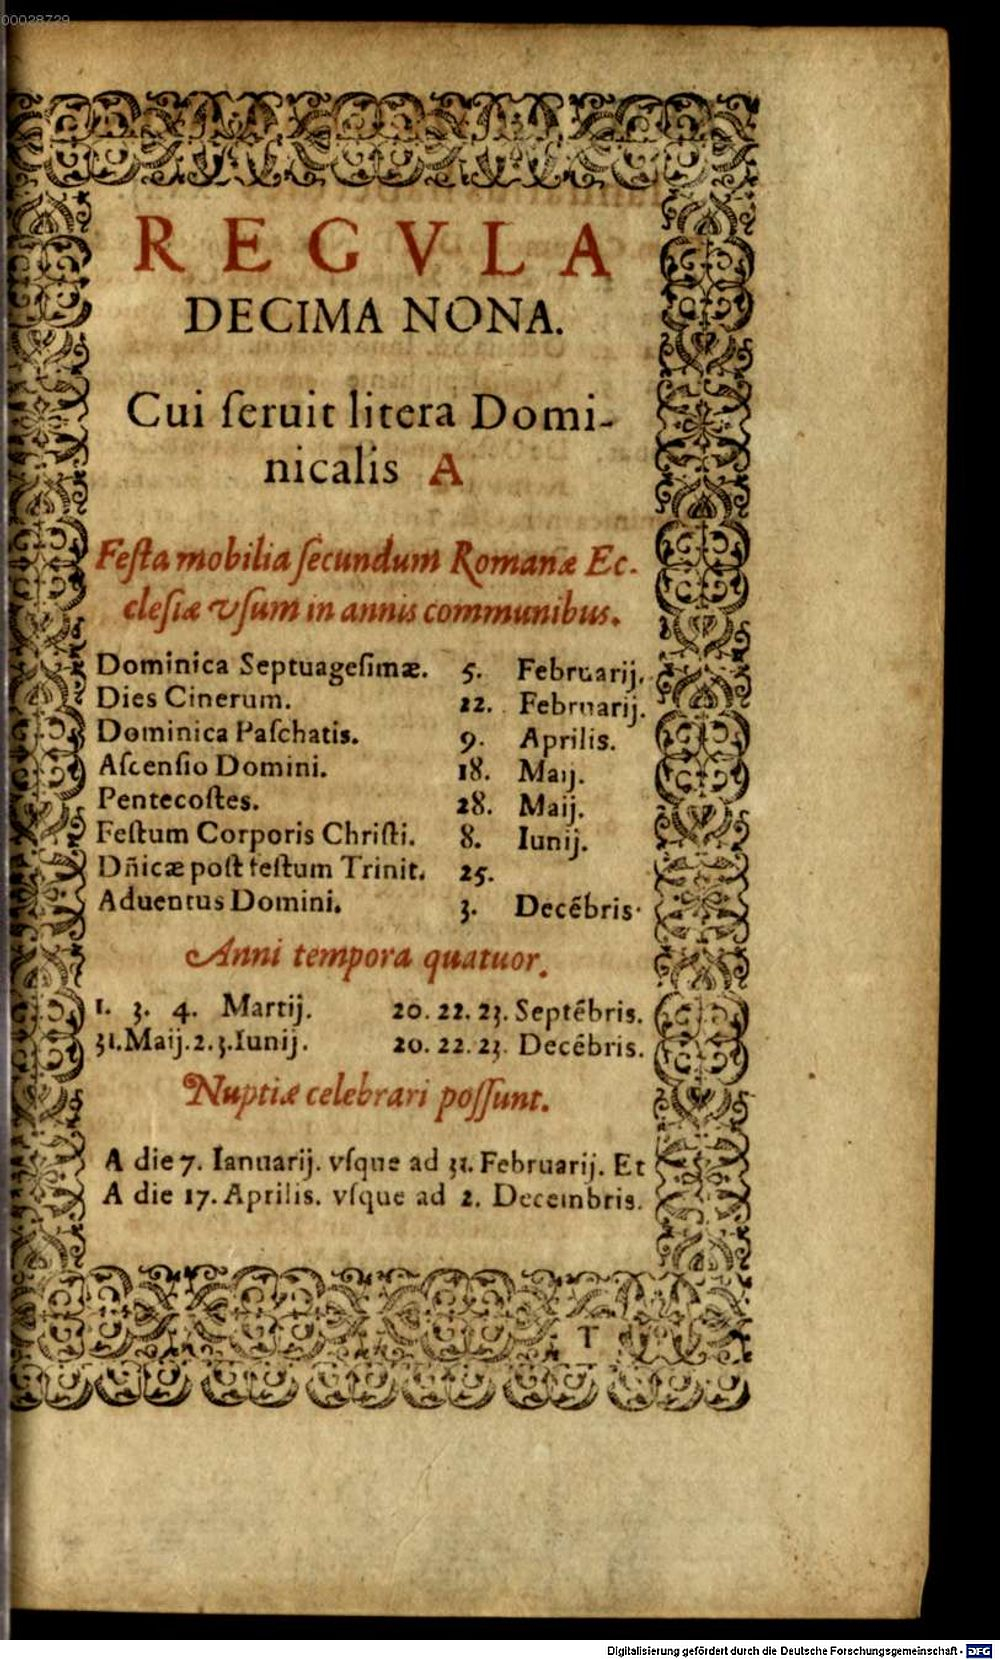 00028729
REGVLA
DECIMA NONA.
Cui ſeruit litera Domi-
nicalis A
Feſta mobilia ſecundum Romanæ Ec-
cleſiæ vſum in annis communibus.
Dominica Septuageſimæ. 5. Februarij.
Dies Cinerum. 22. Februarij.
Dominica Paſchatis. 9. Aprilis.
Aſcenſio Domini. 18. Maij.
Pentecoſtes. 28. Maij.
Feſtum Corporis Chriſti. 8. Iunij.
Dñicæ poſt feſtum Trinit. 25.
Aduentus Domini. 3. Decẽbris.
Anni tempora quatuor.
1. 3. 4. Martij. 20. 22. 23. Septẽbris.
31. Maij. 2. 3. Iunij. 20. 22. 23. Decẽbris.
Nuptiæ celebrari poſſunt.
A die 7. Ianuarij. vſque ad 31. Februarij. Et
A die 17. Aprilis. vſque ad 2. Decembris.
T
Digitalisierung gefördert durch die Deutsche Forschungsgemeinschaft - DFG